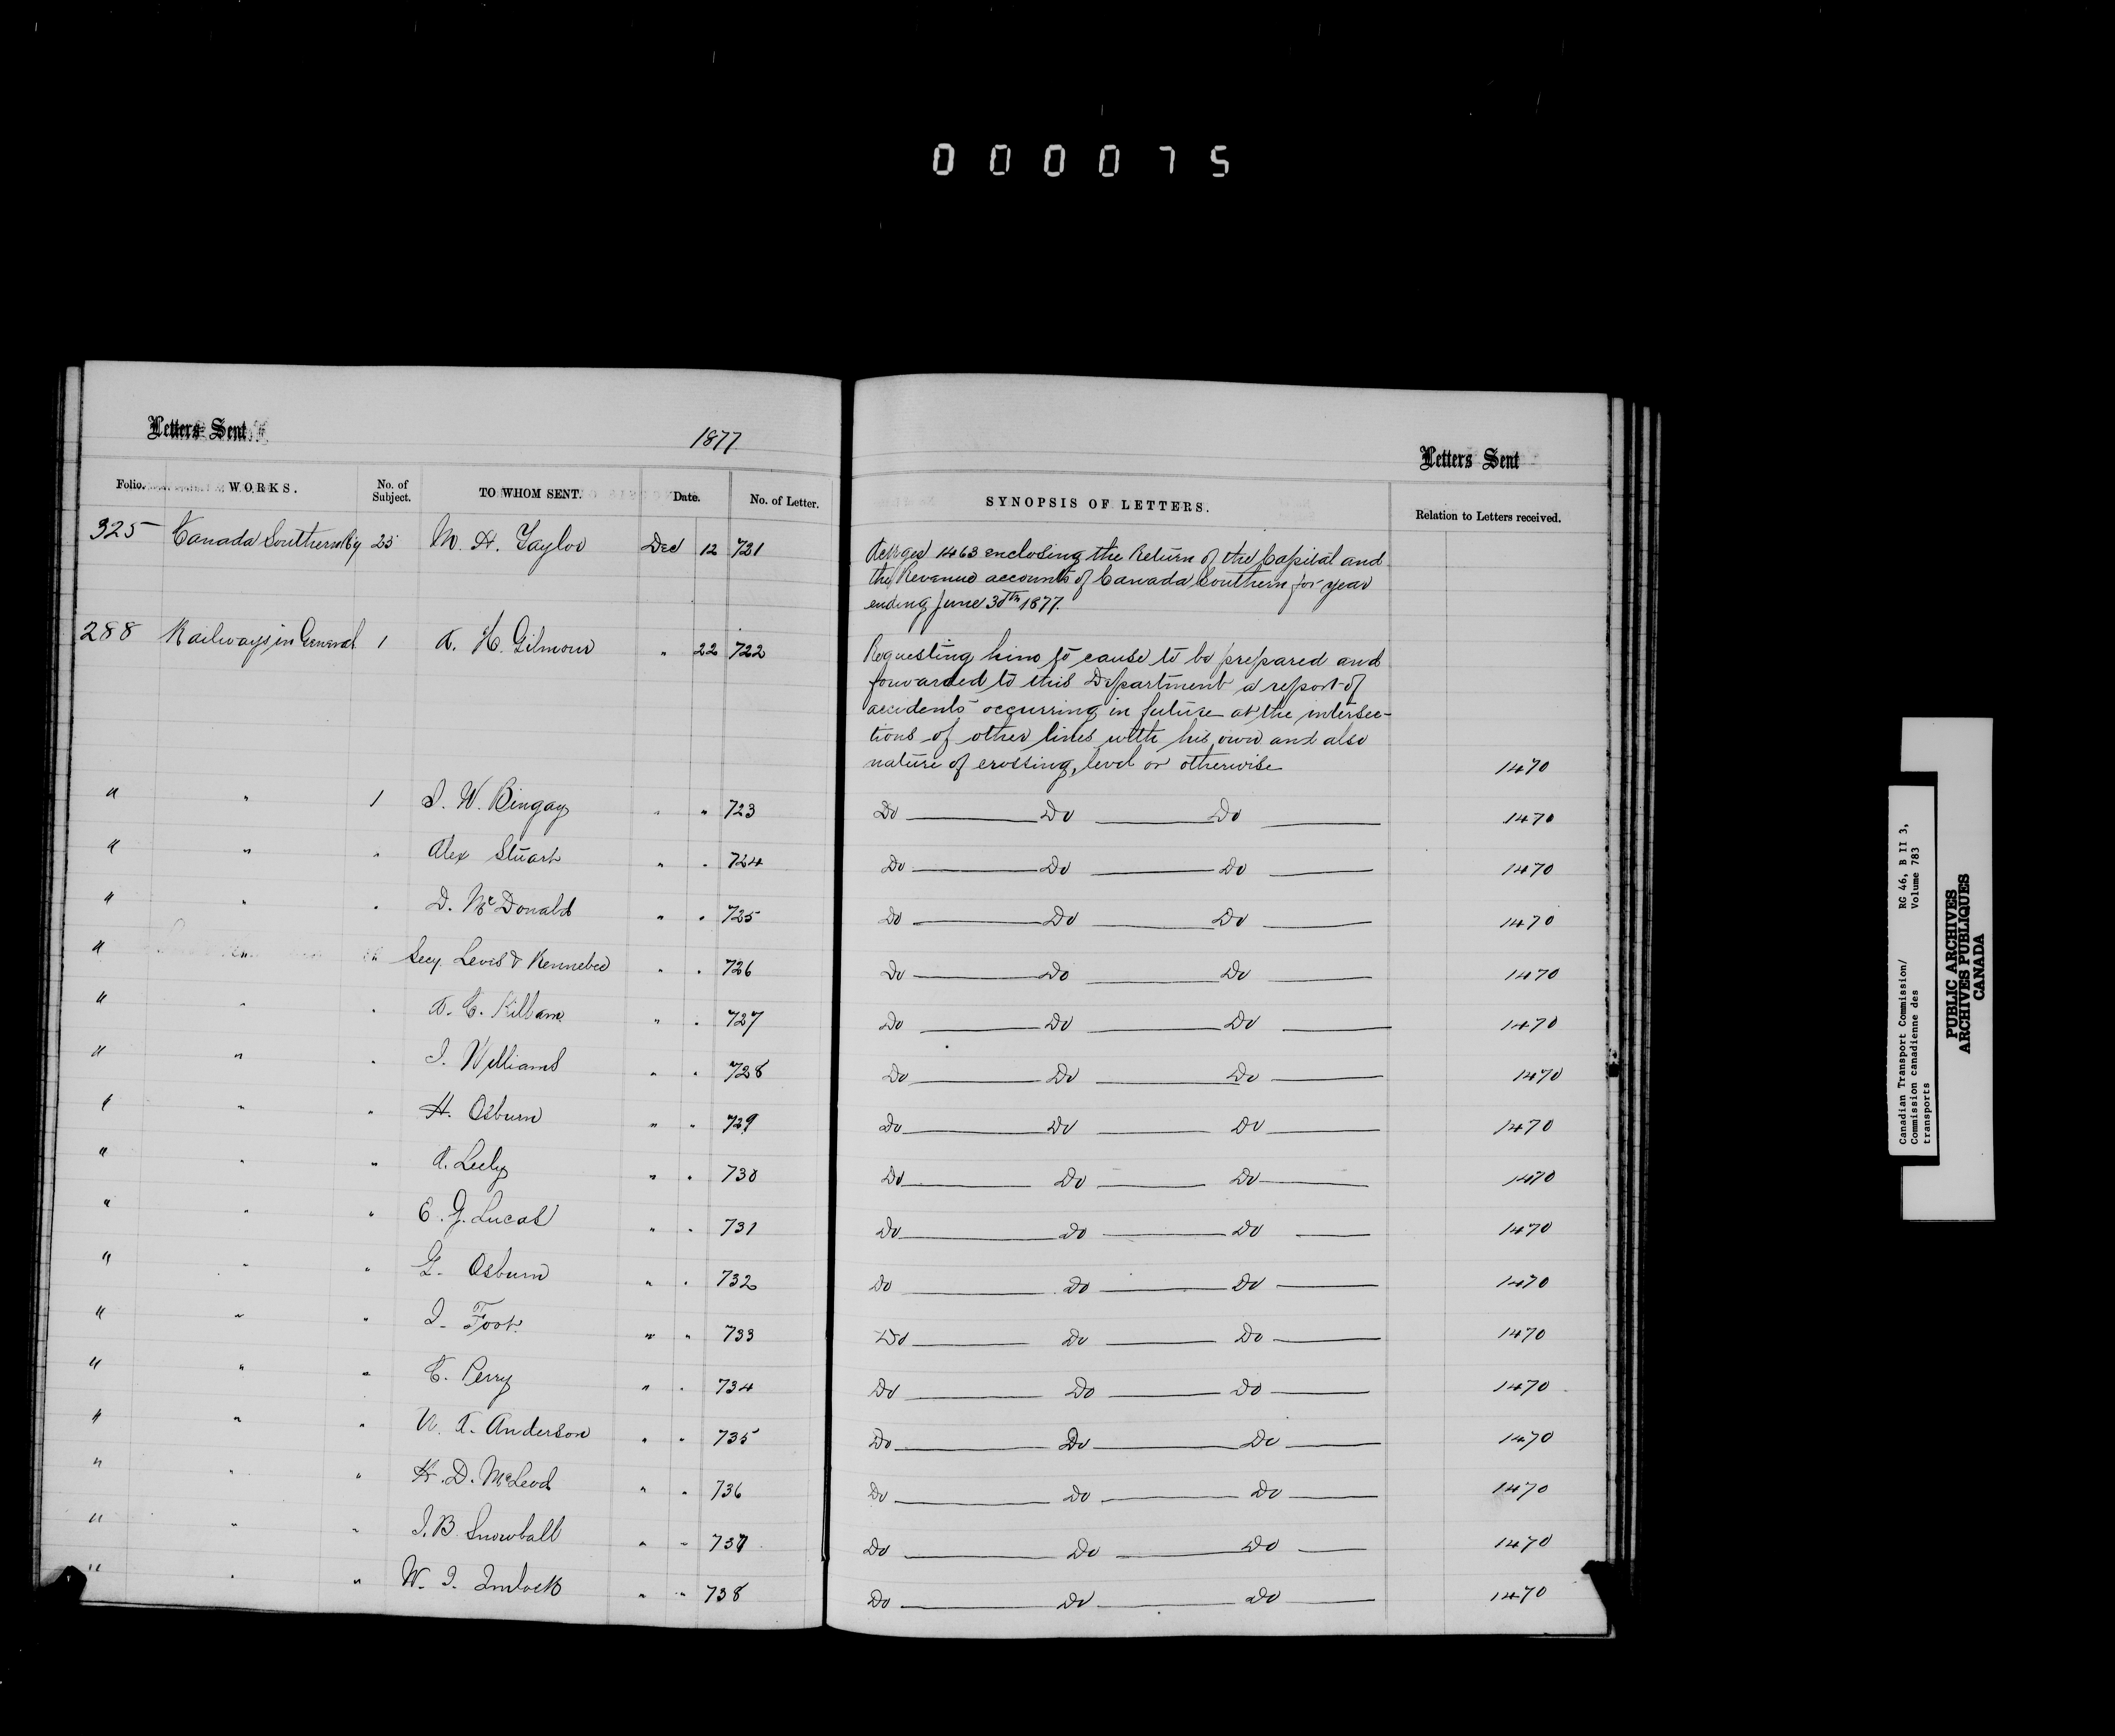 000075
Letters Sent
1877
Letters Sent
Folio. WORKS. No. of Subject. TO WHOM SENT. Date. No. of Letter. SYNOPSIS OF LETTERS. Relation to Letters received.
325 Canada Southern Ry 25 M. H. Taylor Dec 12 721 Ackges 1463 enclosing the Return of the Capital and
the Revenue accounts of Canada Southern for year
ending June 30th 1877.
288 Railways in General 1 A. H. Gilmour " 22 722 Requesting him to cause to be prepared and
forwarded to this Department a report of
accidents occurring in future at the intersec-
tions of other lines with his own and also
nature of crossing, level or otherwise 1470
" " 1 J. W. Bingay " " 723 Do Do Do 1470
" " " Alex Stuart " " 724 Do Do Do 1470
" " " D. McDonald " " 725 Do Do Do 1470
" " " Secy. Levis & Kennebec " " 726 Do Do Do 1470
" " " A. C. Killam " " 727 Do Do Do 1470
" " " J. Williams " " 728 Do Do Do 1470
" " " H. Osburn " " 729 Do Do Do 1470
" " " A. Leely " " 730 Do Do Do 1470
" " " E. G. Lucas " " 731 Do Do Do 1470
" " " G. Osburn " " 732 Do Do Do 1470
" " " J. Foot. " " 733 Do Do Do 1470
" " " C. Perry " " 734 Do Do Do 1470
" " " W. A. Anderson " " 735 Do Do Do 1470
" " " H. D. McLeod " " 736 Do Do Do 1470
" " " J. B. Snowball " " 737 Do Do Do 1470
" " " W. J. Imlach " " 738 Do Do Do 1470
Canadian Transport Commission/ RG 46, B II 3,
Commission canadienne des Volume 783
transports
PUBLIC ARCHIVES
ARCHIVES PUBLIQUES
CANADA